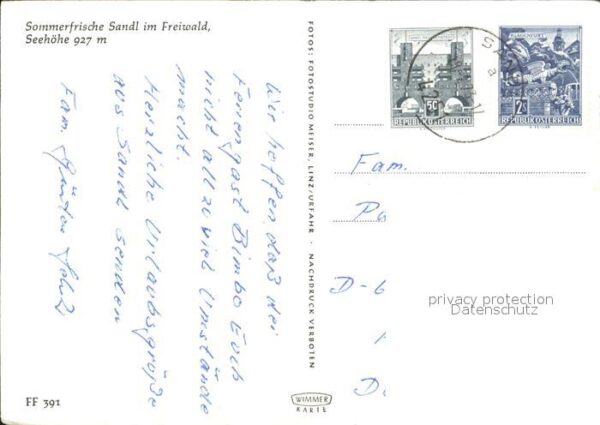 Sommerfrische Sandl im Freiwald,
Seehöhe 927 m
Wir hoffen, daß der
Feriengast Bimbo Euch
nicht allzuviel Umstände
macht.
Herzliche Urlaubsgrüße
aus Sandl senden
Fam.
FOTOS: FOTOSTUDIO MEISER, LINZ/URFAHR · NACHDRUCK VERBOTEN
50
REPUBLIK ÖSTERREICH
KLAGENFURT
2S
REPUBLIK ÖSTERREICH
SANDL
a
Fam.
Pa
D-6
1
D
privacy protection
Datenschutz
FF 391
WIMMER
KARTE